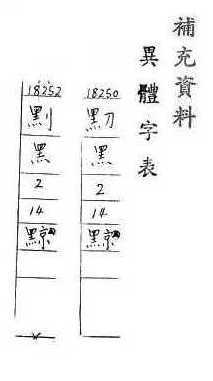 補充資料
異體字表
18250
黑
2
14
黥
18252
黑
2
14
黥